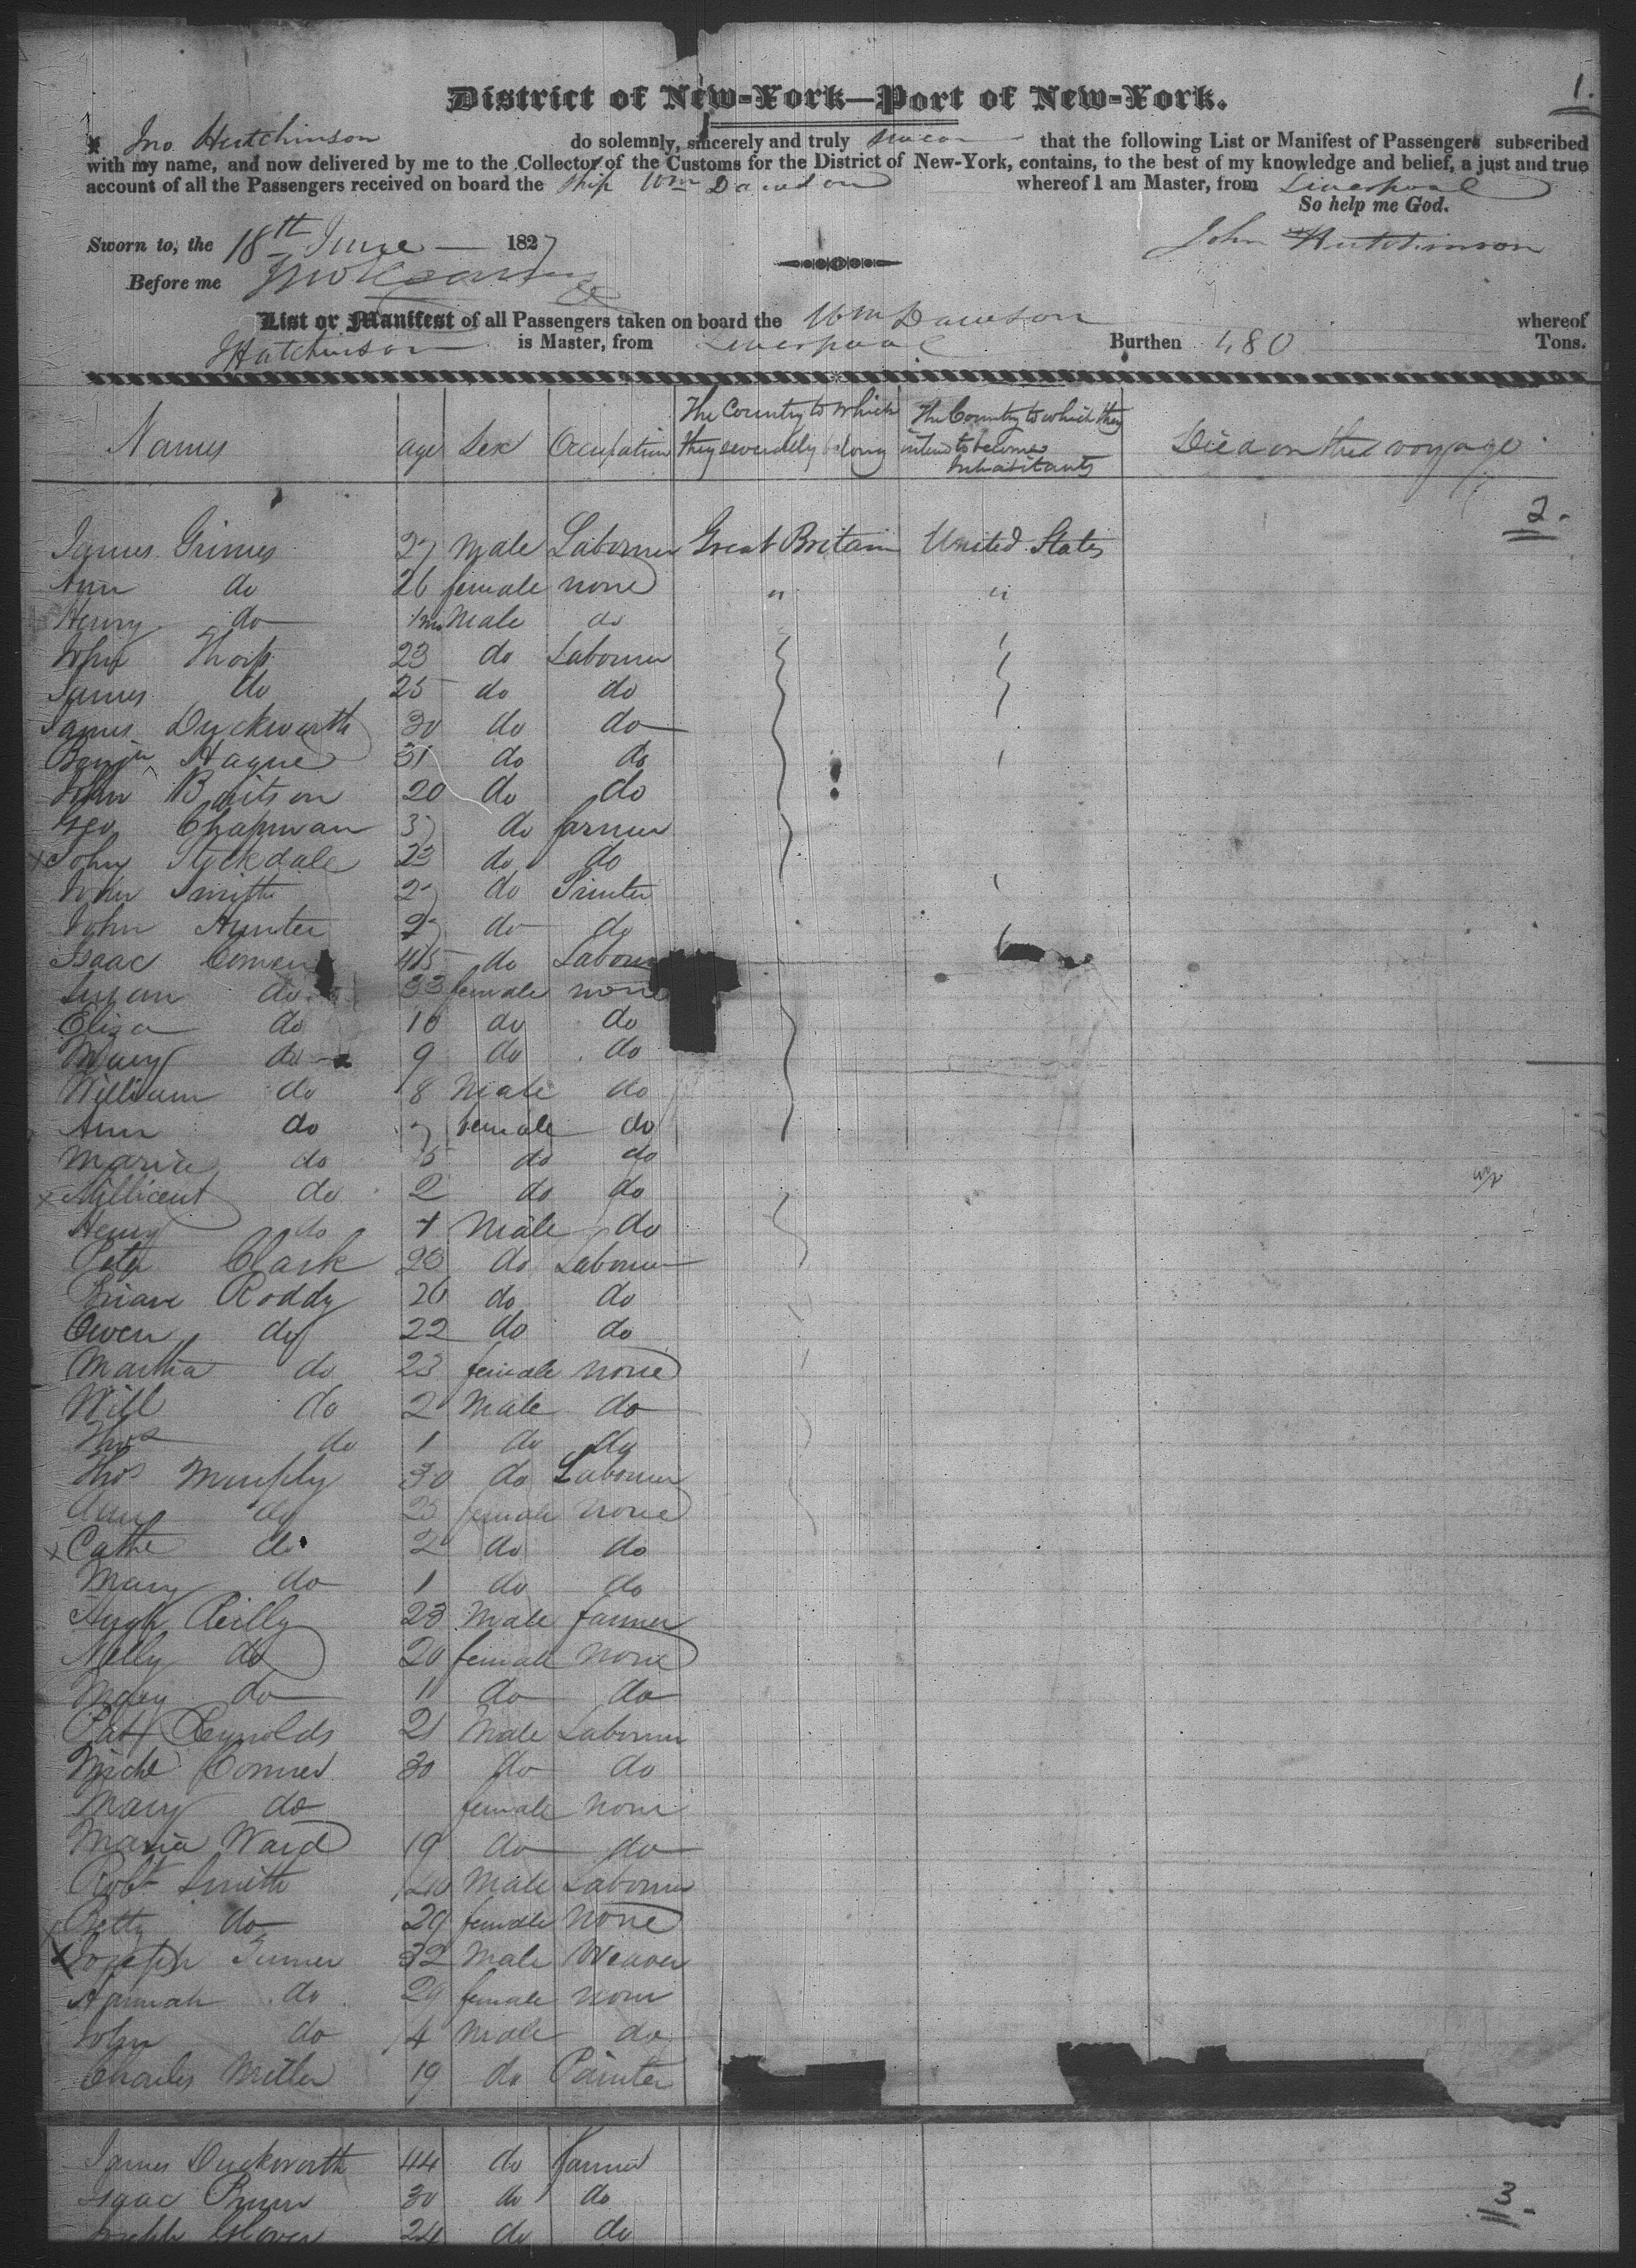 1.
District of New-York—Port of New-York.
Jno Hutchinson do solemnly, sincerely and truly swear that the following List or Manifest of Passengers subscribed
with my name, and now delivered by me to the Collector of the Customs for the District of New-York, contains, to the best of my knowledge and belief, a just and true
account of all the Passengers received on board the Ship Wm Dawson whereof I am Master, from Liverpool
So help me God.
Sworn to, the 18th June 1827 John Hutchinson
Before me
List or Manifest of all Passengers taken on board the Wm Dawson whereof
J Hutchinson is Master, from Liverpool Burthen 480 Tons.
Names age Sex Occupation The Country to which they severally belong The Country to which they intend to become Inhabitants Died on the voyage
2.
James Grimes 27 Male Labourer Great Britain United States
Ann do 26 female none " "
Henry do 1 mo Male do
John Thorp 23 do Labourer
James do 25 do do
James Duckworth 30 do do
Benjn Hague 31 do do
John Baitson 20 do do
Geo Chapman 37 do farmer
x John Stockdale 23 do do
John Smith 27 do Printer
John Hunter 27 do do
Isaac 45 do Labourer
Susan do 33 female none
Eliza do 10 do do
Mary do 9 do do
William do 8 Male do
Ann do 7 female do
Maria do 5 do do
x Millicent do 2 do do
Henry do 1 Male do
Peter Clark 28 do Labourer
Briane Roddy 26 do do
Owen do 22 do do
Martha do 23 female none
Will do 2 Male do
Thos do 1 do do
Thos Murphy 30 do Labourer
Ann do 25 female none
x Cathe do 2 do do
Mary do 1 do do
Hugh Reilly 23 Male farmer
Nelly do 20 female none
Mary do 11 do do
Pat Reynolds 21 Male Labourer
Michl Conner 30 do do
Mary do female none
Maria Ward 19 do do
Robt Smith 40 Male Labourer
Betty do 29 female none
x Joseph Turner 32 Male Weaver
Hannah do 29 female none
John do 4 Male do
Charles Miller 19 do Painter
James Duckworth 44 do farmer
Isaac 30 do do
3.
Joseph Glover 24 do do